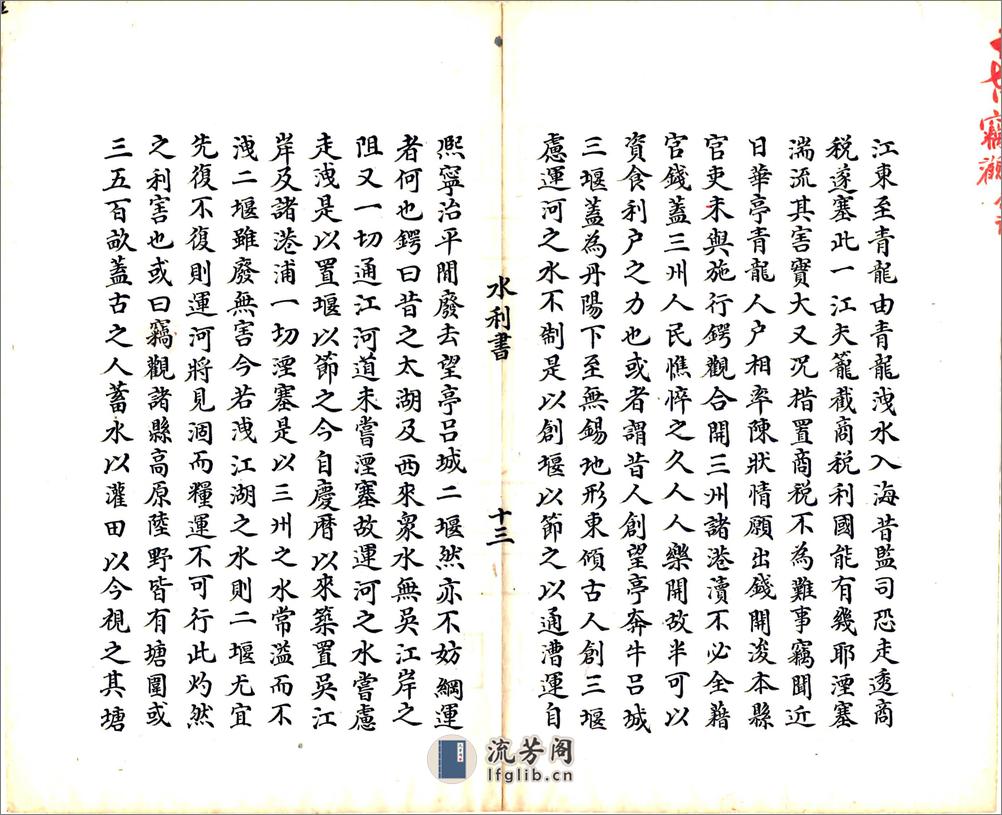 江東至青龍由青龍洩水入海昔監司恐走透商
稅遂塞此一江夫籠截商稅利國能有幾耶湮塞
湍流其害實大又况措置商稅不為難事竊聞近
日華亭青龍人户相率陳狀情願出錢開浚本縣
官吏未與施行鍔觀合開三州諸港瀆不必全藉
官錢蓋三州人民憔悴之久人人樂開故半可以
資食利户之力也或者謂昔人創望亭奔牛吕城
三堰蓋為丹陽下至無錫地形東傾古人創三堰
慮運河之水不制是以創堰以節之以通漕運自
水利書
十三
熙寧治平間廢去望亭吕城二堰然亦不妨綱運
者何也鍔曰昔之太湖及西來衆水無吴江岸之
阻又一切通江河道未嘗湮塞故運河之水嘗慮
走洩是以置堰以節之今自慶曆以來築置吴江
岸及諸港浦一切湮塞是以三州之水常溢而不
洩二堰雖廢無害今若洩江湖之水則二堰尤宜
先復不復則運河將見涸而糧運不可行此灼然
之利害也或曰竊觀諸縣高原陸野皆有塘圍或
三五百畝蓋古之人蓄水以灌田以今視之其塘
流芳阁
lfglib.cn